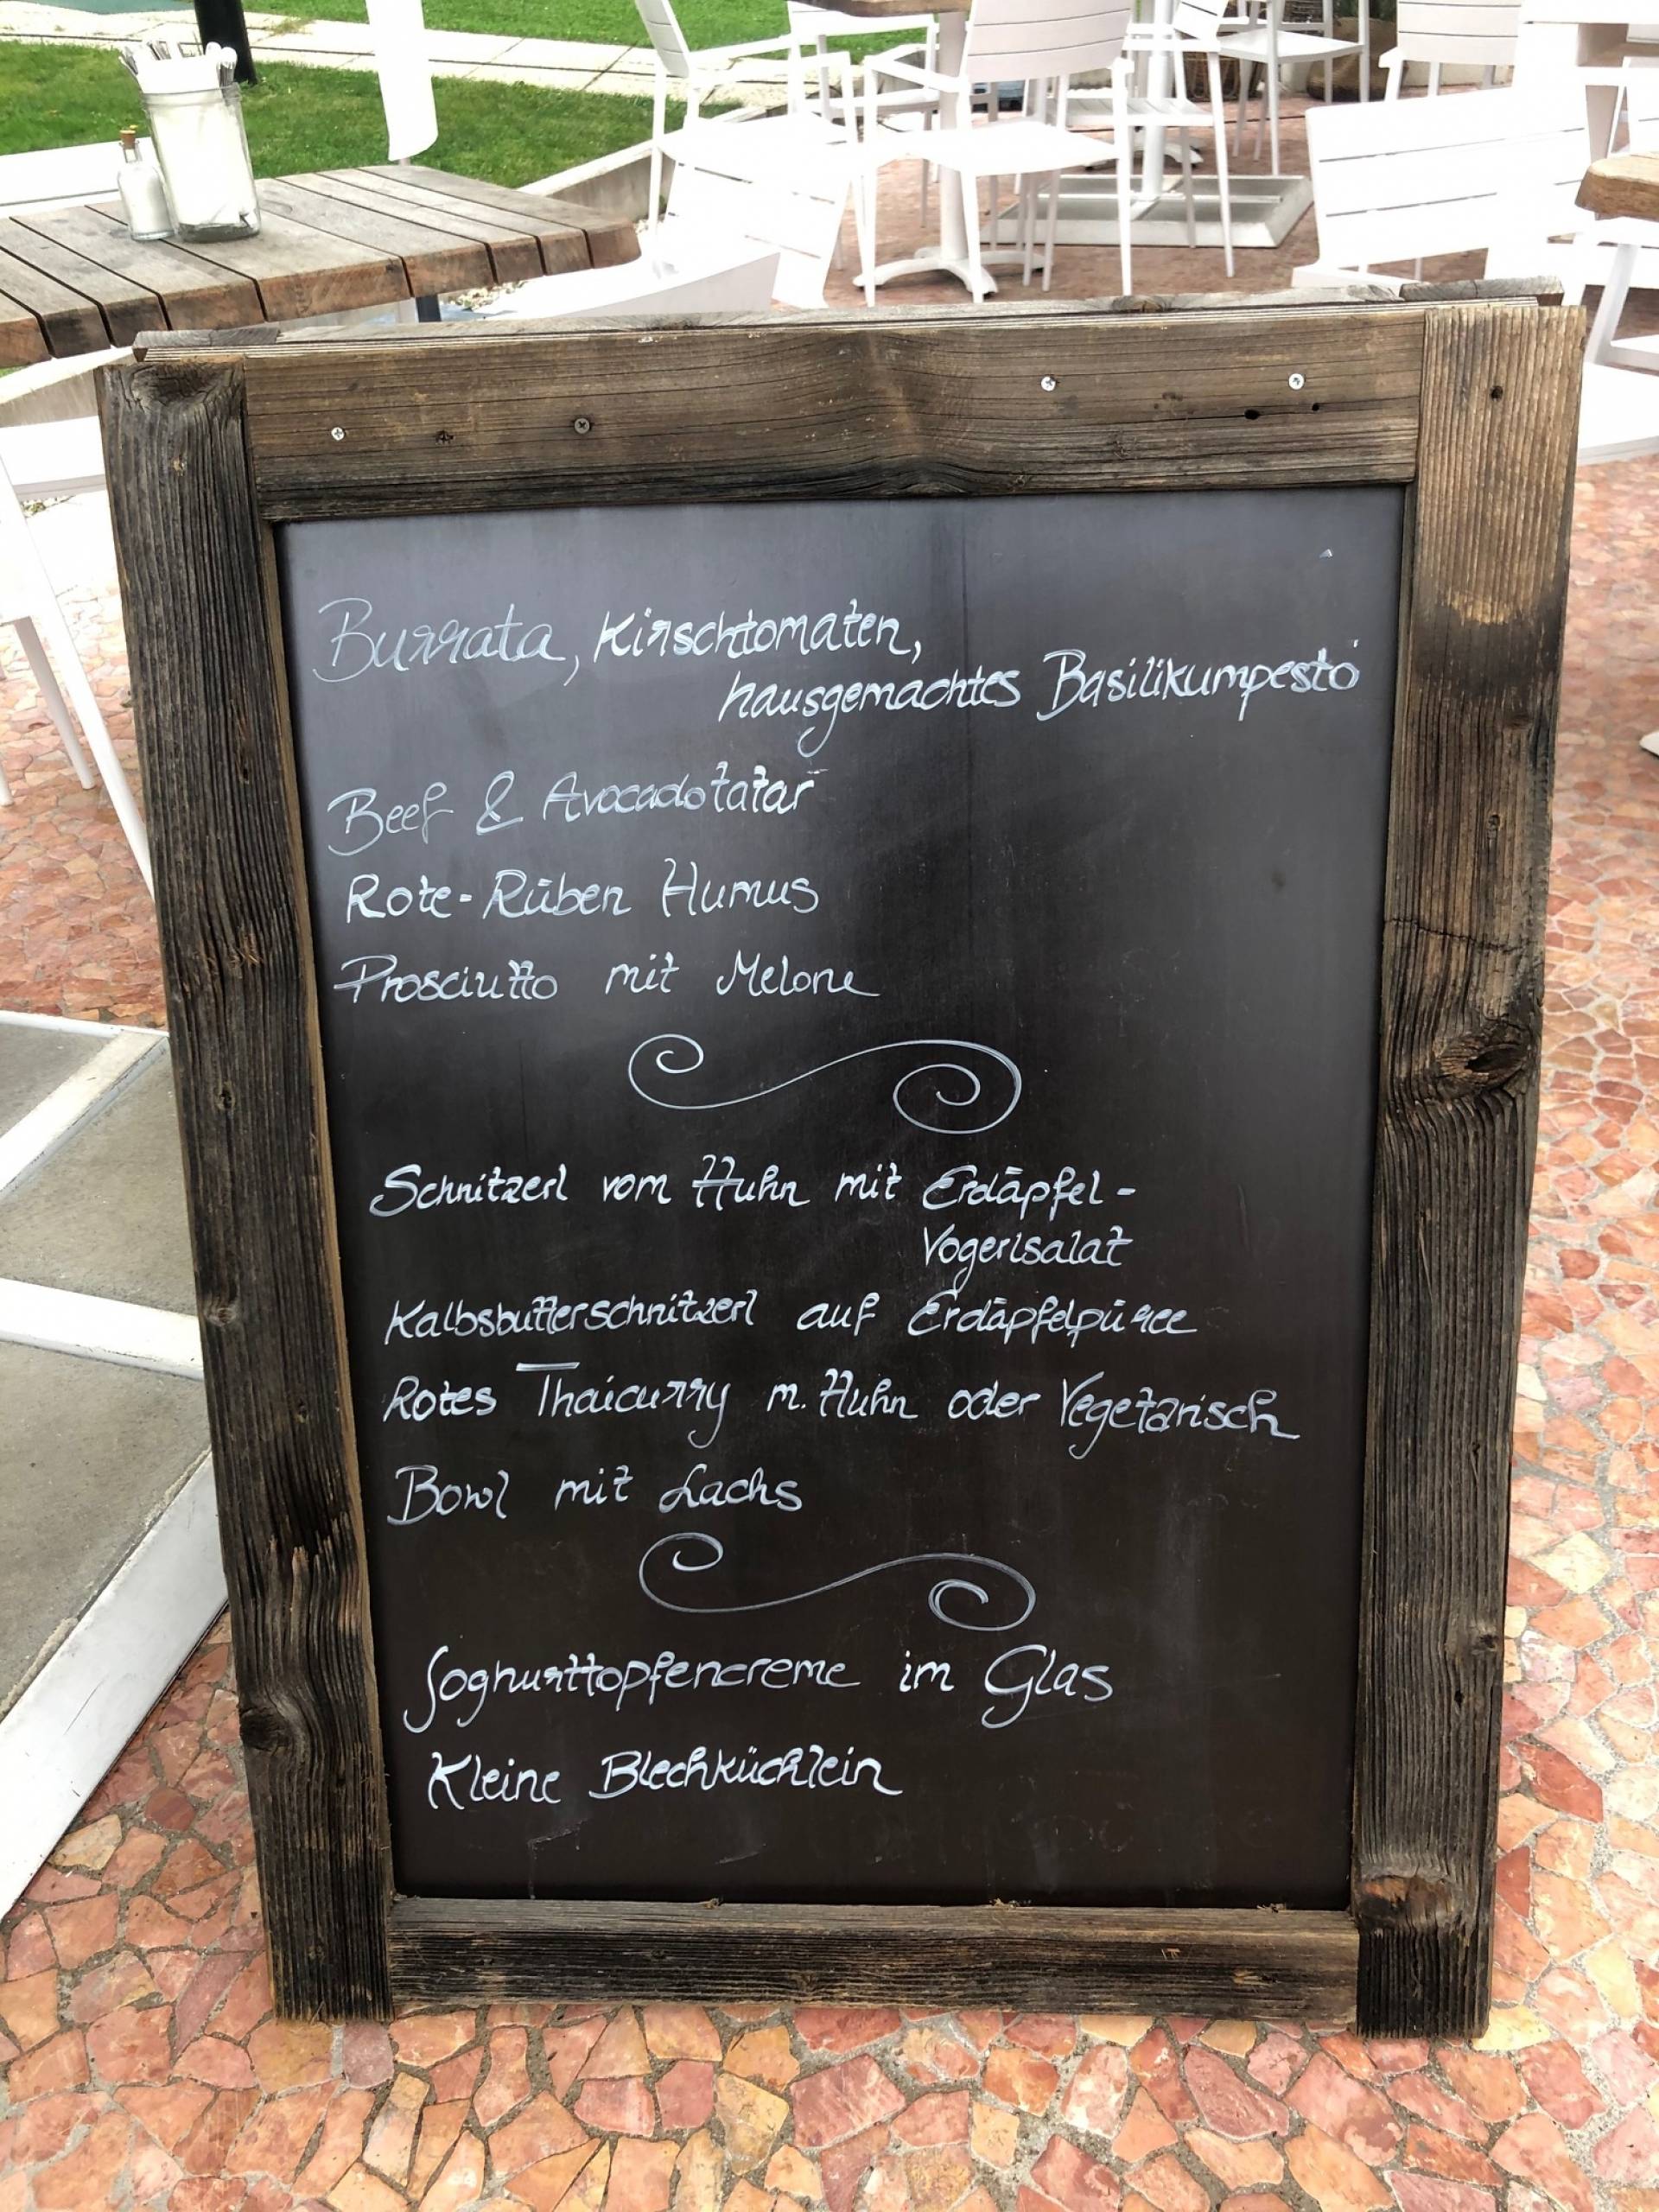 Burrata, Kirschtomaten,
hausgemachtes Basilikumpesto
Beef & Avocadotatar
Rote-Rüben Humus
Prosciutto mit Melone
Schnitzerl vom Huhn mit Erdäpfel-
Vogerlsalat
Kalbsbutterschnitzerl auf Erdäpfelpüree
Rotes Thaicurry m. Huhn oder Vegetarisch
Bowl mit Lachs
Joghurttopfencreme im Glas
Kleine Blechküchlein